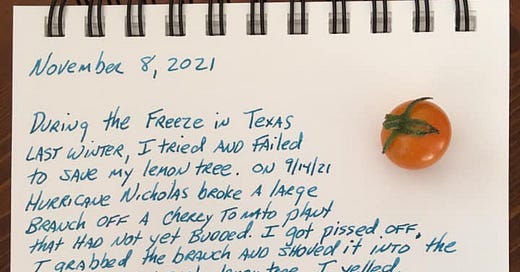 November 8, 2021
During the Freeze in Texas
last winter, I tried and failed
to save my lemon tree. On 9/14/21
Hurricane Nicholas broke a large
branch off a cherry tomato plant
that had not yet budded. I got pissed off,
I grabbed the branch and shoved it into the
lemon tree. I yelled